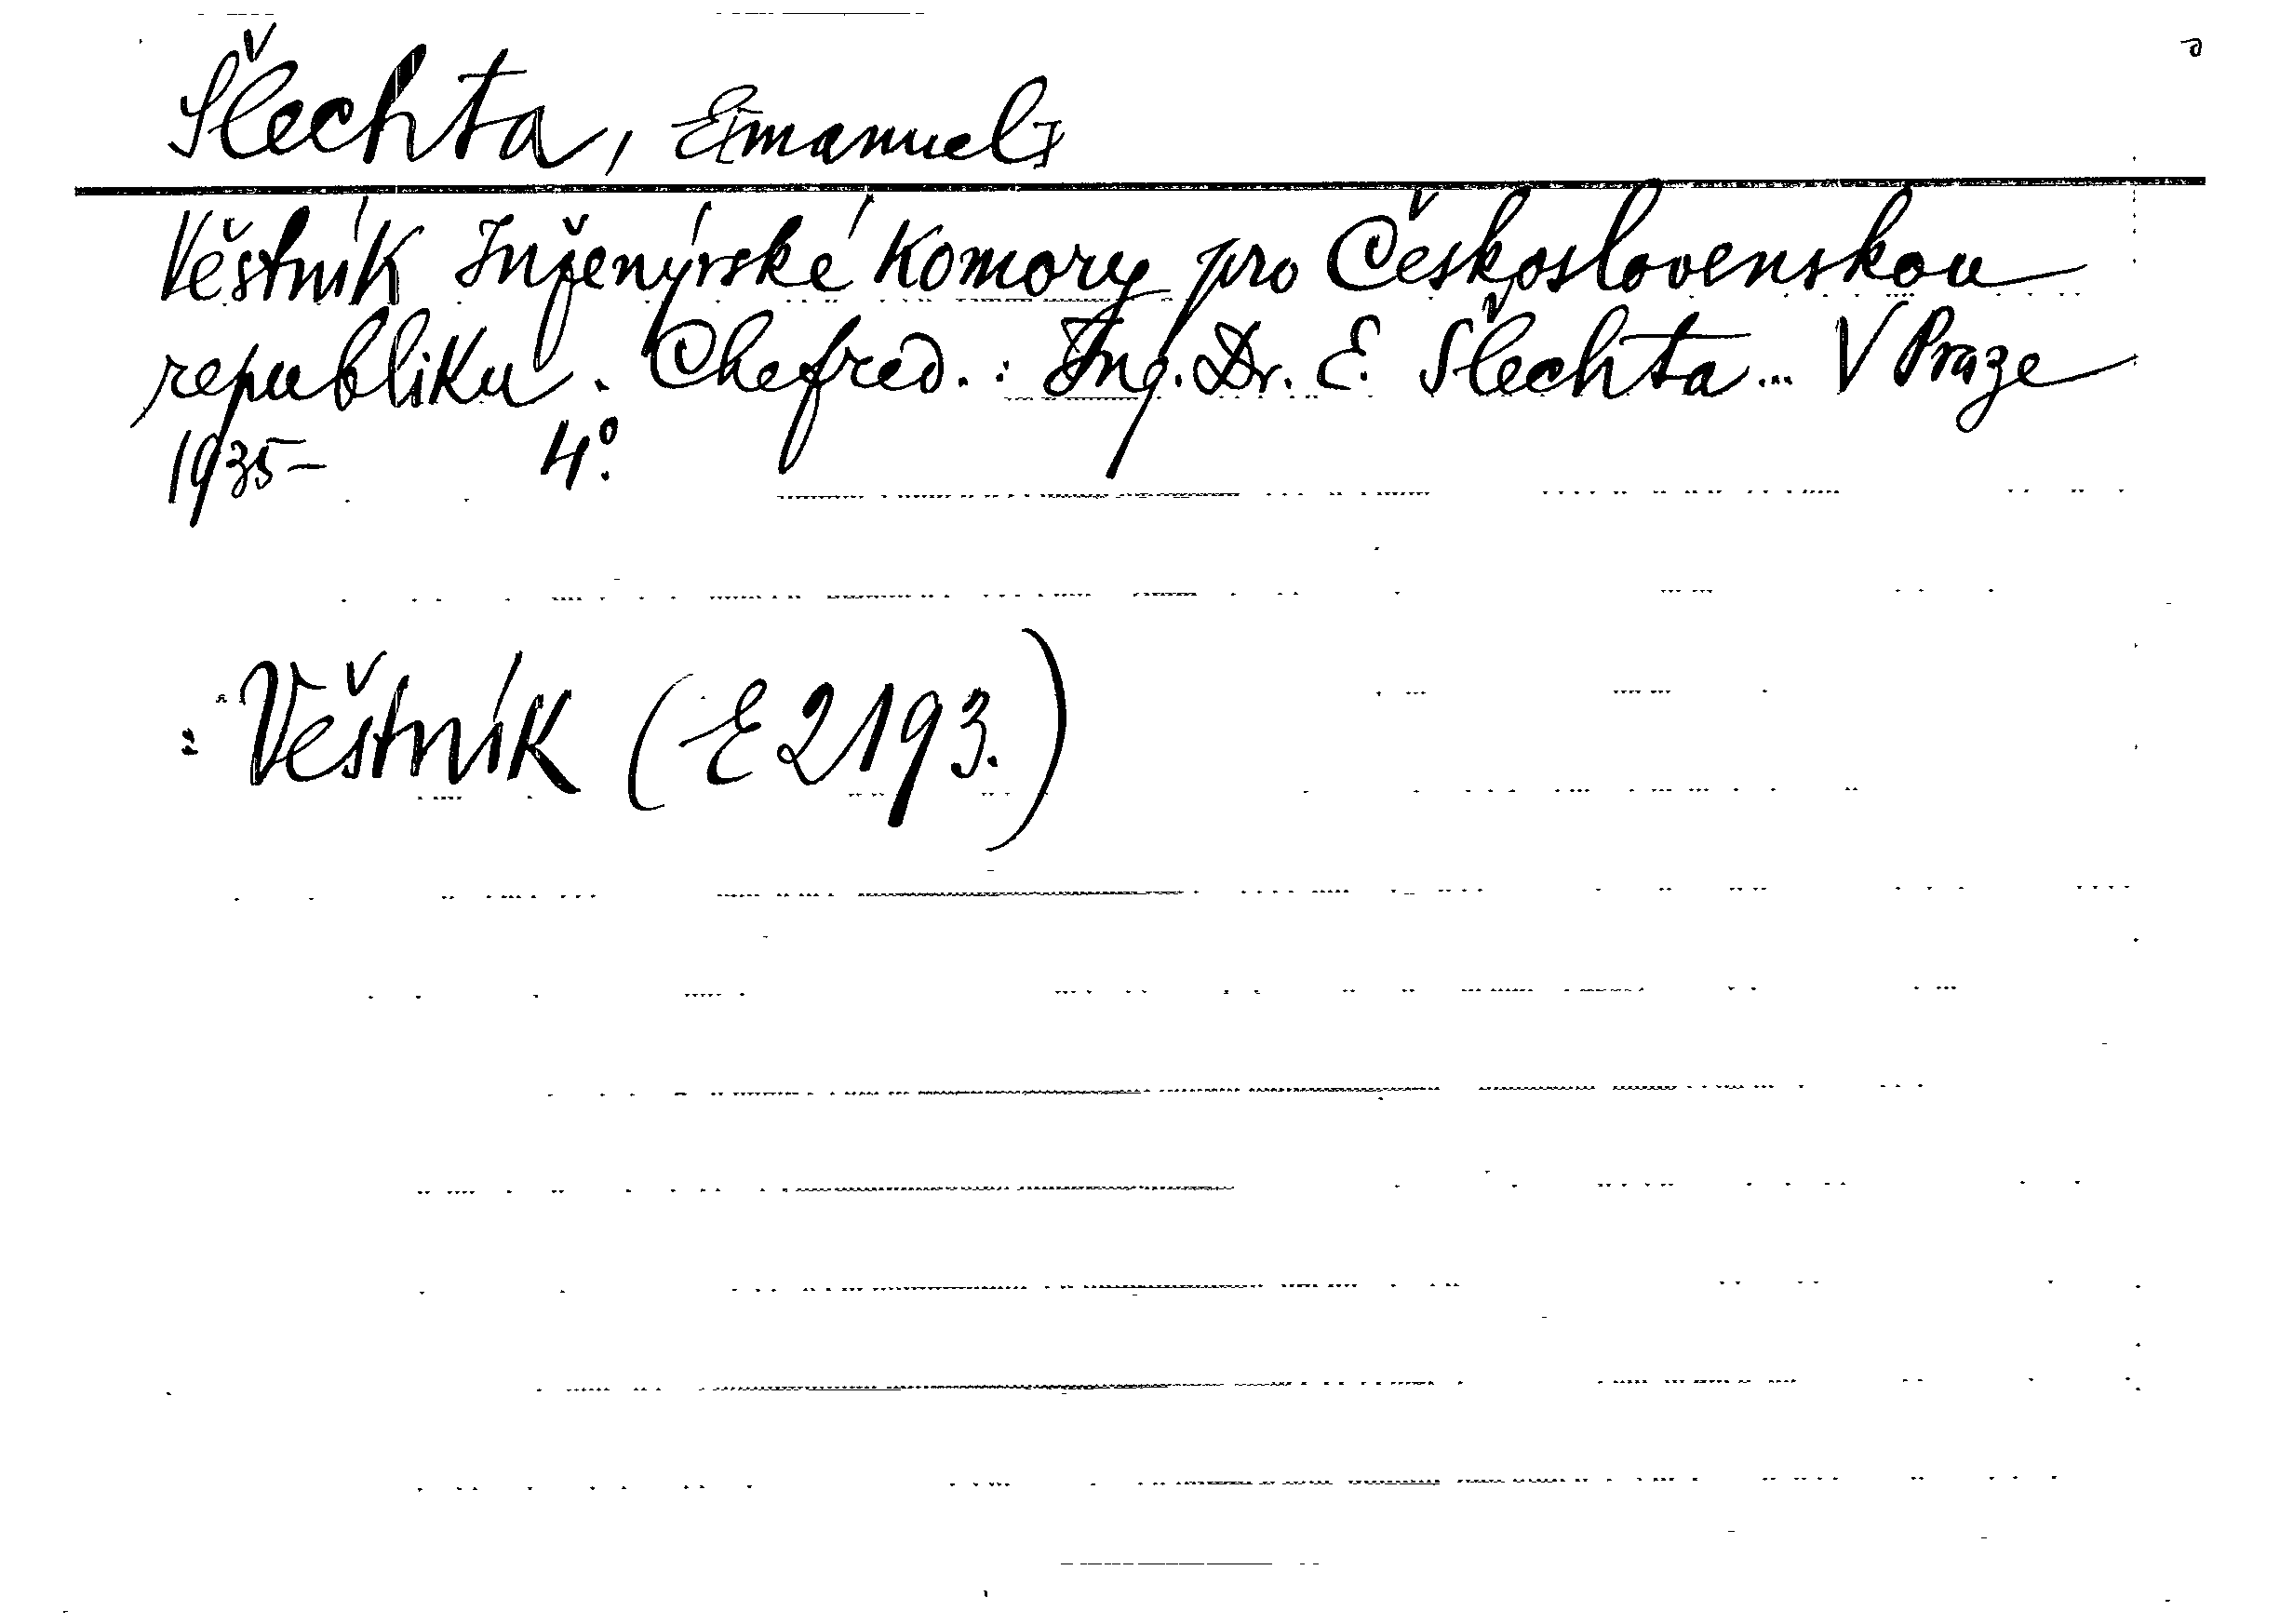 Šlechta, E[manuel]
Věstník Inženýrské Komory pro Československou
republiku. Chefred.: Ing. Dr. E. Šlechta... V Praze
1935- 4º.
: Věstník (E 2193.)